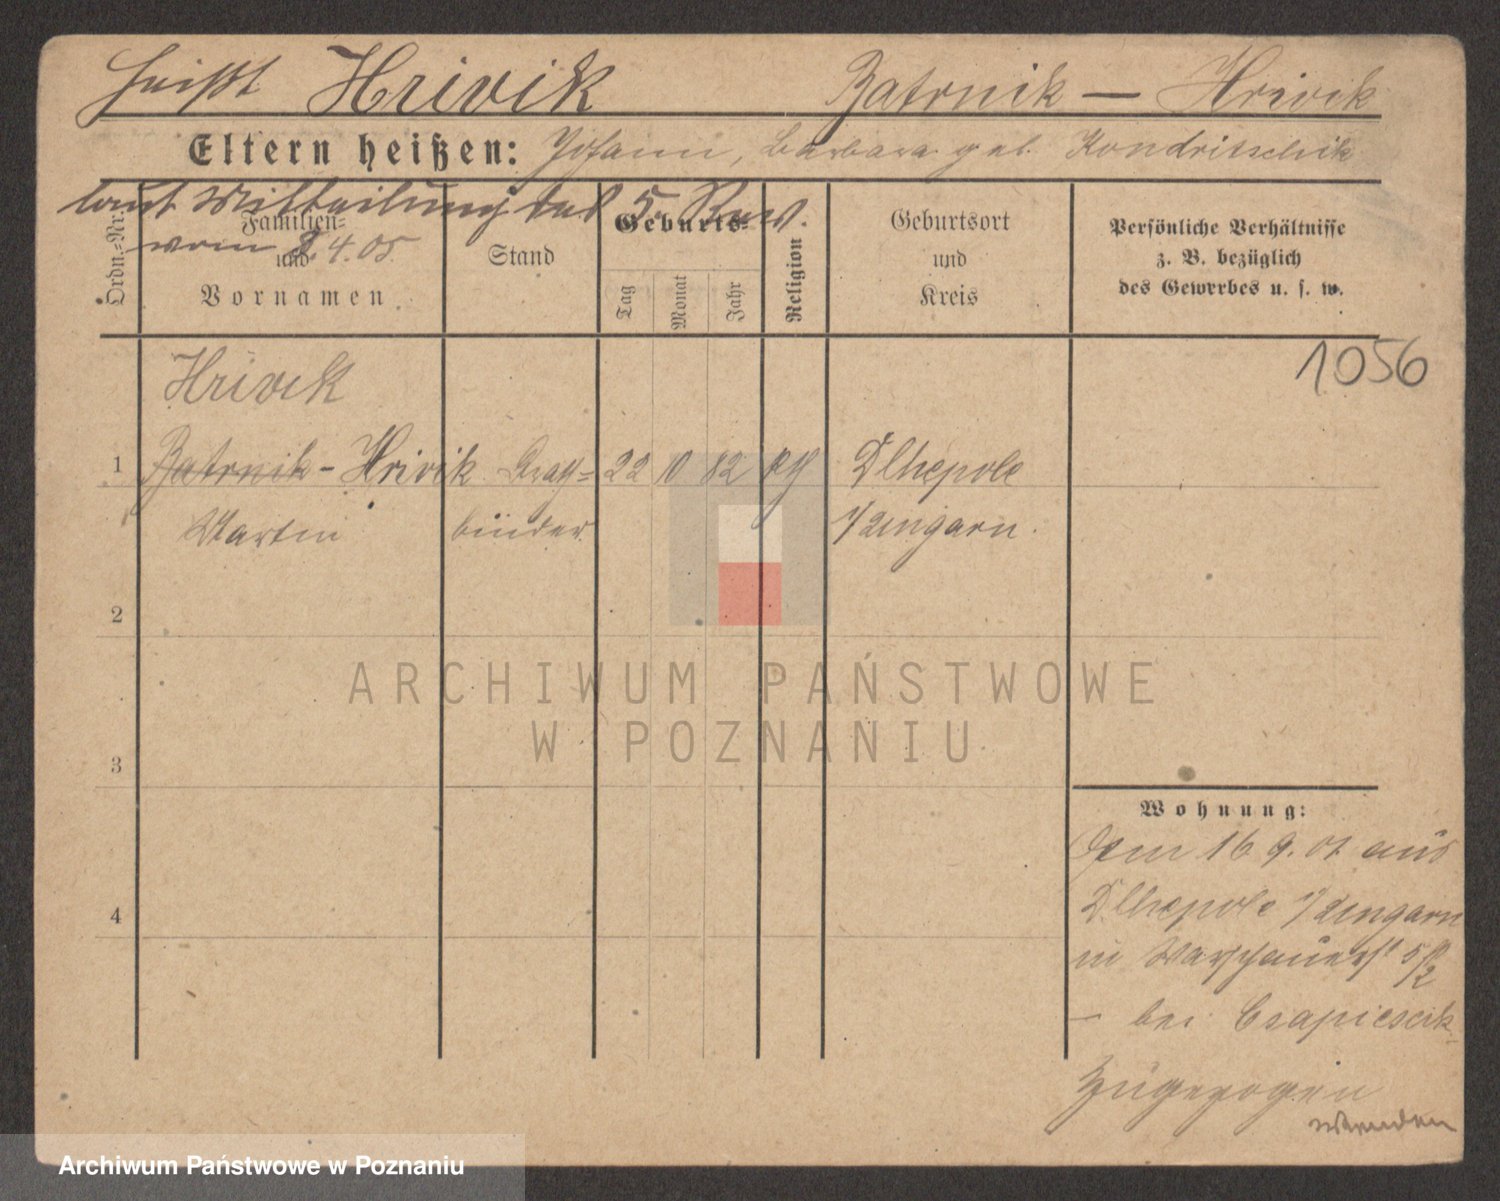 heißt Hrivik Batrnik — Hrivik
Eltern heißen: Johann, Barbara geb. Kondritschik
laut Mitteilung des 5. Rev.
vom 8.4.05
Ordn.-Nr.
Familien-
und
Vornamen
Stand
Geburts-
Tag
Monat
Jahr
Religion
Geburtsort
und
Kreis
Persönliche Verhältnisse
z. B. bezüglich
des Gewerbes u. s. w.
1056
Hrivik
1 Batrnik - Hrivik Drath= 22 10 82 Dlhepole
Martin binder Ungarn.
2
3
4
Wohnung:
Am 16 9. 01 aus
Dlhepole Ungarn
in Warschauerst 5/2
— bei Czapiescik
zugezogen
Wenden
ARCHIWUM PAŃSTWOWE
W POZNANIU
Archiwum Państwowe w Poznaniu